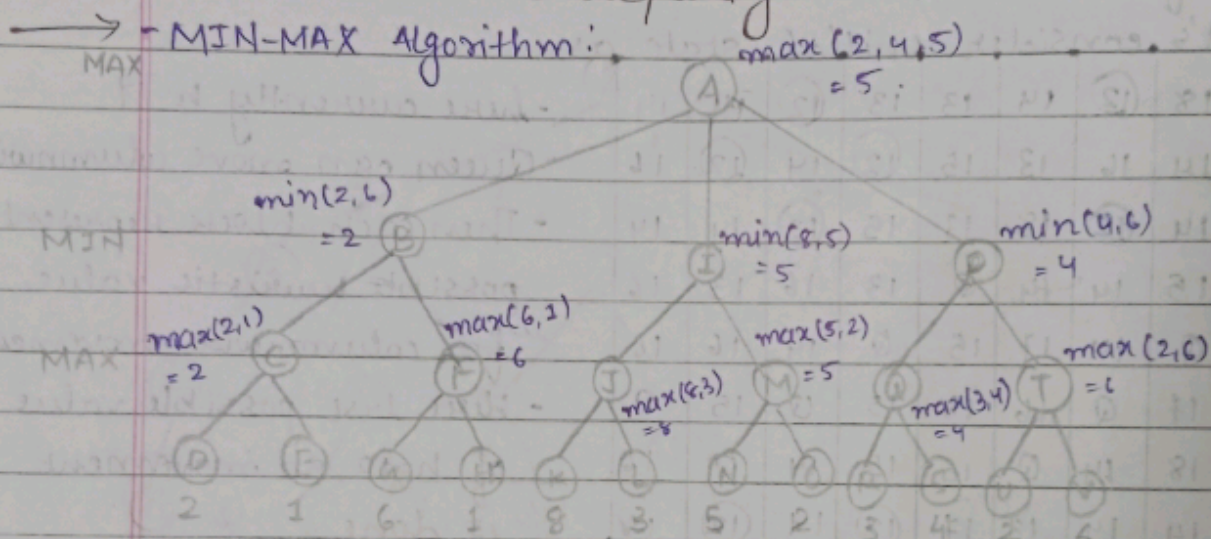 - MIN-MAX Algorithm:
max (2,4,5)
= 5
MAX
A
min(2,6)
= 2
MIN
B
min(8,5)
= 5
I
min(4,6)
= 4
P
max(2,1)
= 2
MAX
C
max(6,1)
= 6
F
J
max(8,3)
= 8
max(5,2)
= 5
M
Q
max(3,4)
= 4
T
max (2,6)
= 6
D E G H K L N O R S U V
2 1 6 1 8 3 5 2 3 4 2 6